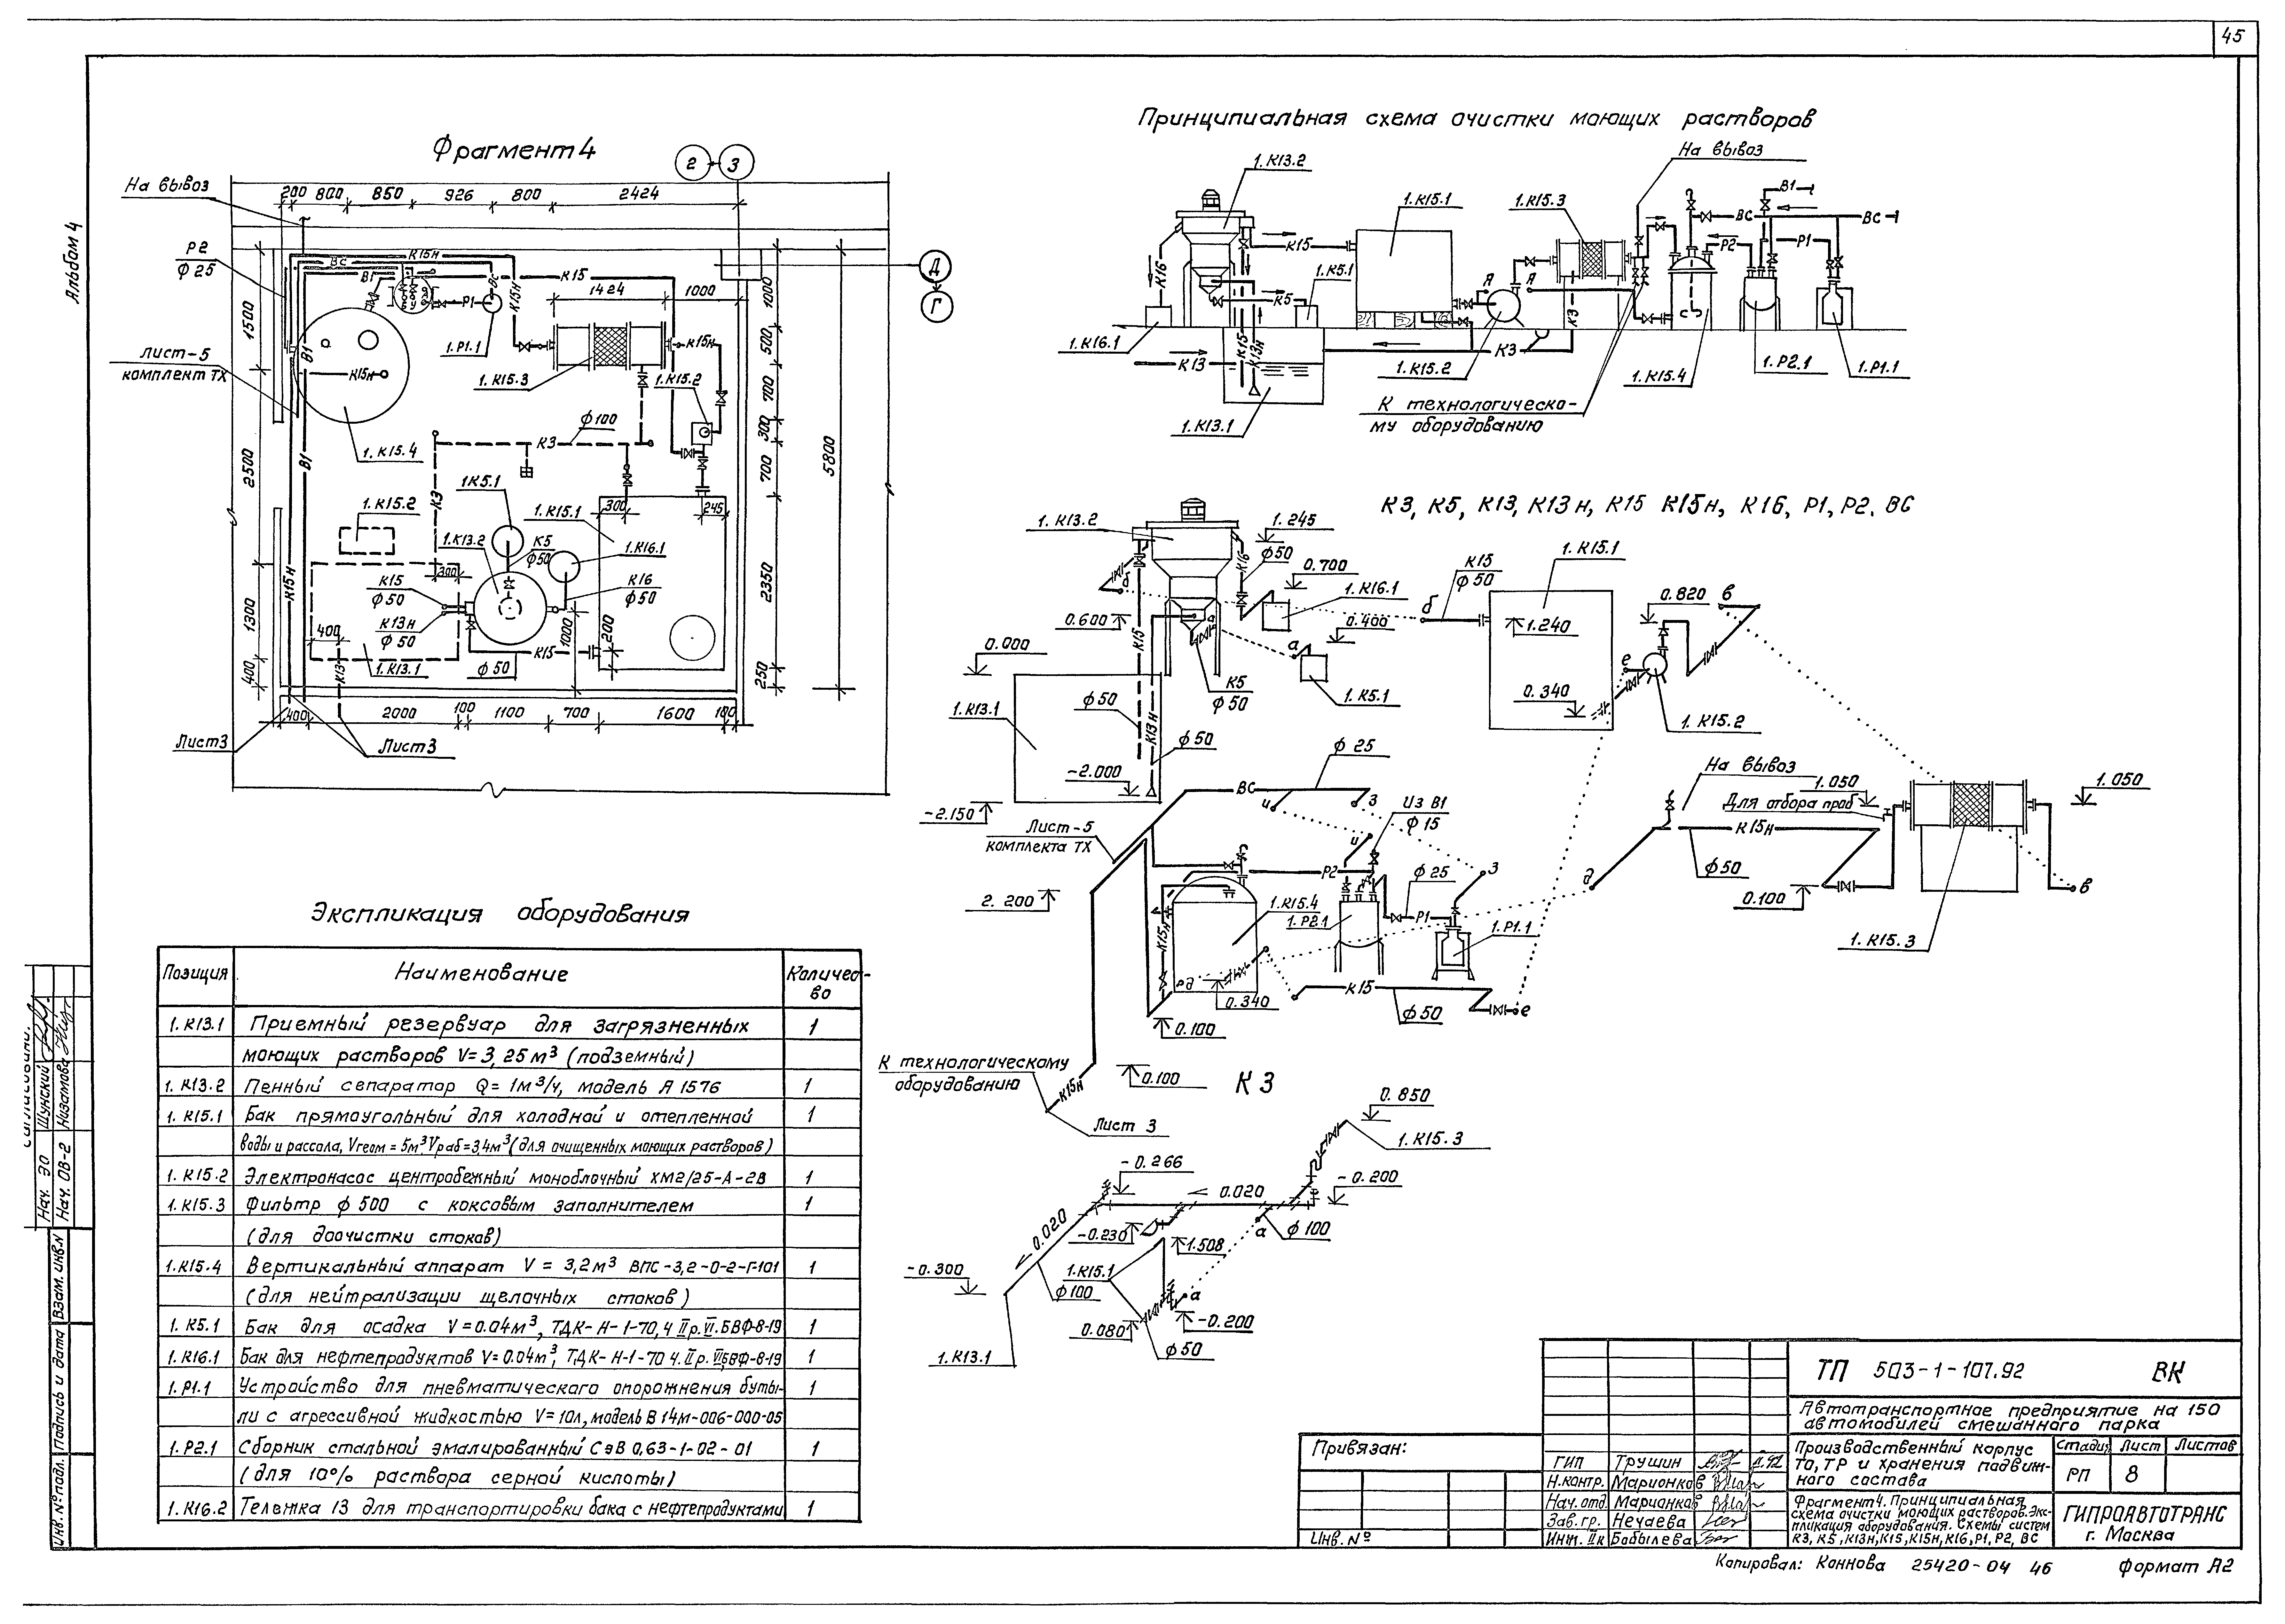 45
Альбом 4
Фрагмент 4
2
3
На вывоз
200 800 850 926 800 2424
Р2
ф 25
К15н
ВС
В1
ВС
К15
Р1
К15н
1424
1000
1.Р1.1
К15н
1.К15.3
1.К15.2
Д
Г
1500
2500
1300
400
Лист-5
комплект ТХ
В1
К15н
1.К15.4
ф100
К3
К3
В1
1К5.1
1.К15.2
1.К15.1
300
245
1.К13.2
К5
ф50
1.К16.1
300
К15
ф50
К16
ф50
К13н
ф50
К15н
400
1000
200
К15
ф50
1.К13.1
К13
1000
500
700
300
700
2350
250
5800
400 2000 100 1100 700 1600 100
Лист3
Лист3
Принципиальная схема очистки моющих растворов
На вывоз
1.К13.2
1.К15.1
1.К15.3
В1
ВС
ВС
К15
Р2
Р1
К16
1.К5.1
А
А
К5
К3
К15
К13н
1.К16.1
К13
К3
1.К15.2
1.К15.4
1.Р2.1
1.Р1.1
1.К13.1
К технологическо-
му оборудованию
К3, К5, К13, К13н, К15 К15н, К16, Р1, Р2, ВС
1.К13.2
1.245
К16
ф50
б
0.700
1.К16.1
К15
ф50
б
1.К15.1
1.240
0.820
в
е
0.600
К15
0.400
а
0.000
К5
ф50
1.К5.1
0.340
1.К15.2
1.К13.1
ф50
К13н
ф50
-2.000
-2.150
ф 25
ВС
и
з
Из В1
ф 15
На вывоз
1.050
Для отбора проб
1.050
К15н
ф50
д
0.100
в
1.К15.3
Лист-5
комплекта ТХ
и
Р2
ф25
з
2.200
К15н
1.К15.4
1.Р2.1
Р1
1.Р1.1
д
0.340
К15
ф50
е
0.100
К технологическому
оборудованию
0.100
К15н
Лист 3
К 3
0.850
1.К15.3
-0.266
0.020
-0.200
0.020
-0.230
а
ф100
1.508
-0.300
1.К15.1
ф100
а
0.080
-0.200
ф50
1.К13.1
Экспликация оборудования
Позиция Наименование Количес-
во
1.К13.1 Приемный резервуар для загрязненных 1
моющих растворов V=3,25м³ (подземный)
1.К13.2 Пенный сепаратор Q=1м³/ч, модель Я 1576 1
1.К15.1 Бак прямоугольный для холодной и отепленной 1
воды и рассола, Vгеом = 5м³ Vраб=3,4м³ (для очищенных моющих растворов)
1.К15.2 Электронасос центробежный моноблочный ХМ2/25-А-2В 1
1.К15.3 Фильтр ф 500 с коксовым заполнителем 1
(для доочистки стоков)
1.К15.4 Вертикальный аппарат V = 3,2м³ ВПС-3,2-0-2-Г-101 1
(для нейтрализации щелочных стоков)
1.К5.1 Бак для осадка V=0.04м³, ТДК-Н-1-70, ч II р. VI. БВФ-8-19 1
1.К16.1 Бак для нефтепродуктов V=0.04м³, ТДК-Н-1-70 ч. II р. VI, БВФ-8-19 1
1.Р1.1 Устройство для пневматического опорожнения буты- 1
ли с агрессивной жидкостью V=10л, модель В 14М-006-000-05
1.Р2.1 Сборник стальной эмалированный СэВ 0,63-1-02-01 1
(для 10% раствора серной кислоты)
1.К16.2 Тележка 13 для транспортировки бака с нефтепродуктами 1
Нач. ЭО Шунский
Нач. ОВ-2 Низамова
Взам. инв.N
Подпись и дата
Инв. N° подл.
Привязан:
Инв. N°
ТП 503-1-107.92 ВК
Автотранспортное предприятие на 150
автомобилей смешанного парка
ГИП Трушин
Н.контр. Марионков
Нач.отд. Марионков
Зав.гр. Нечаева
Инж. IIк Бобылева
Производственный корпус
ТО, ТР и хранения подвиж-
ного состава
Стадия Лист Листов
РП 8
Фрагмент 4. Принципиальная
схема очистки моющих растворов. Экс-
пликация оборудования. Схемы систем
К3, К5, К13н, К15, К15н, К16, Р1, Р2, ВС
ГИПРОАВТОТРАНС
г. Москва
Копировал: Коннова 25420-04 46 Формат А2